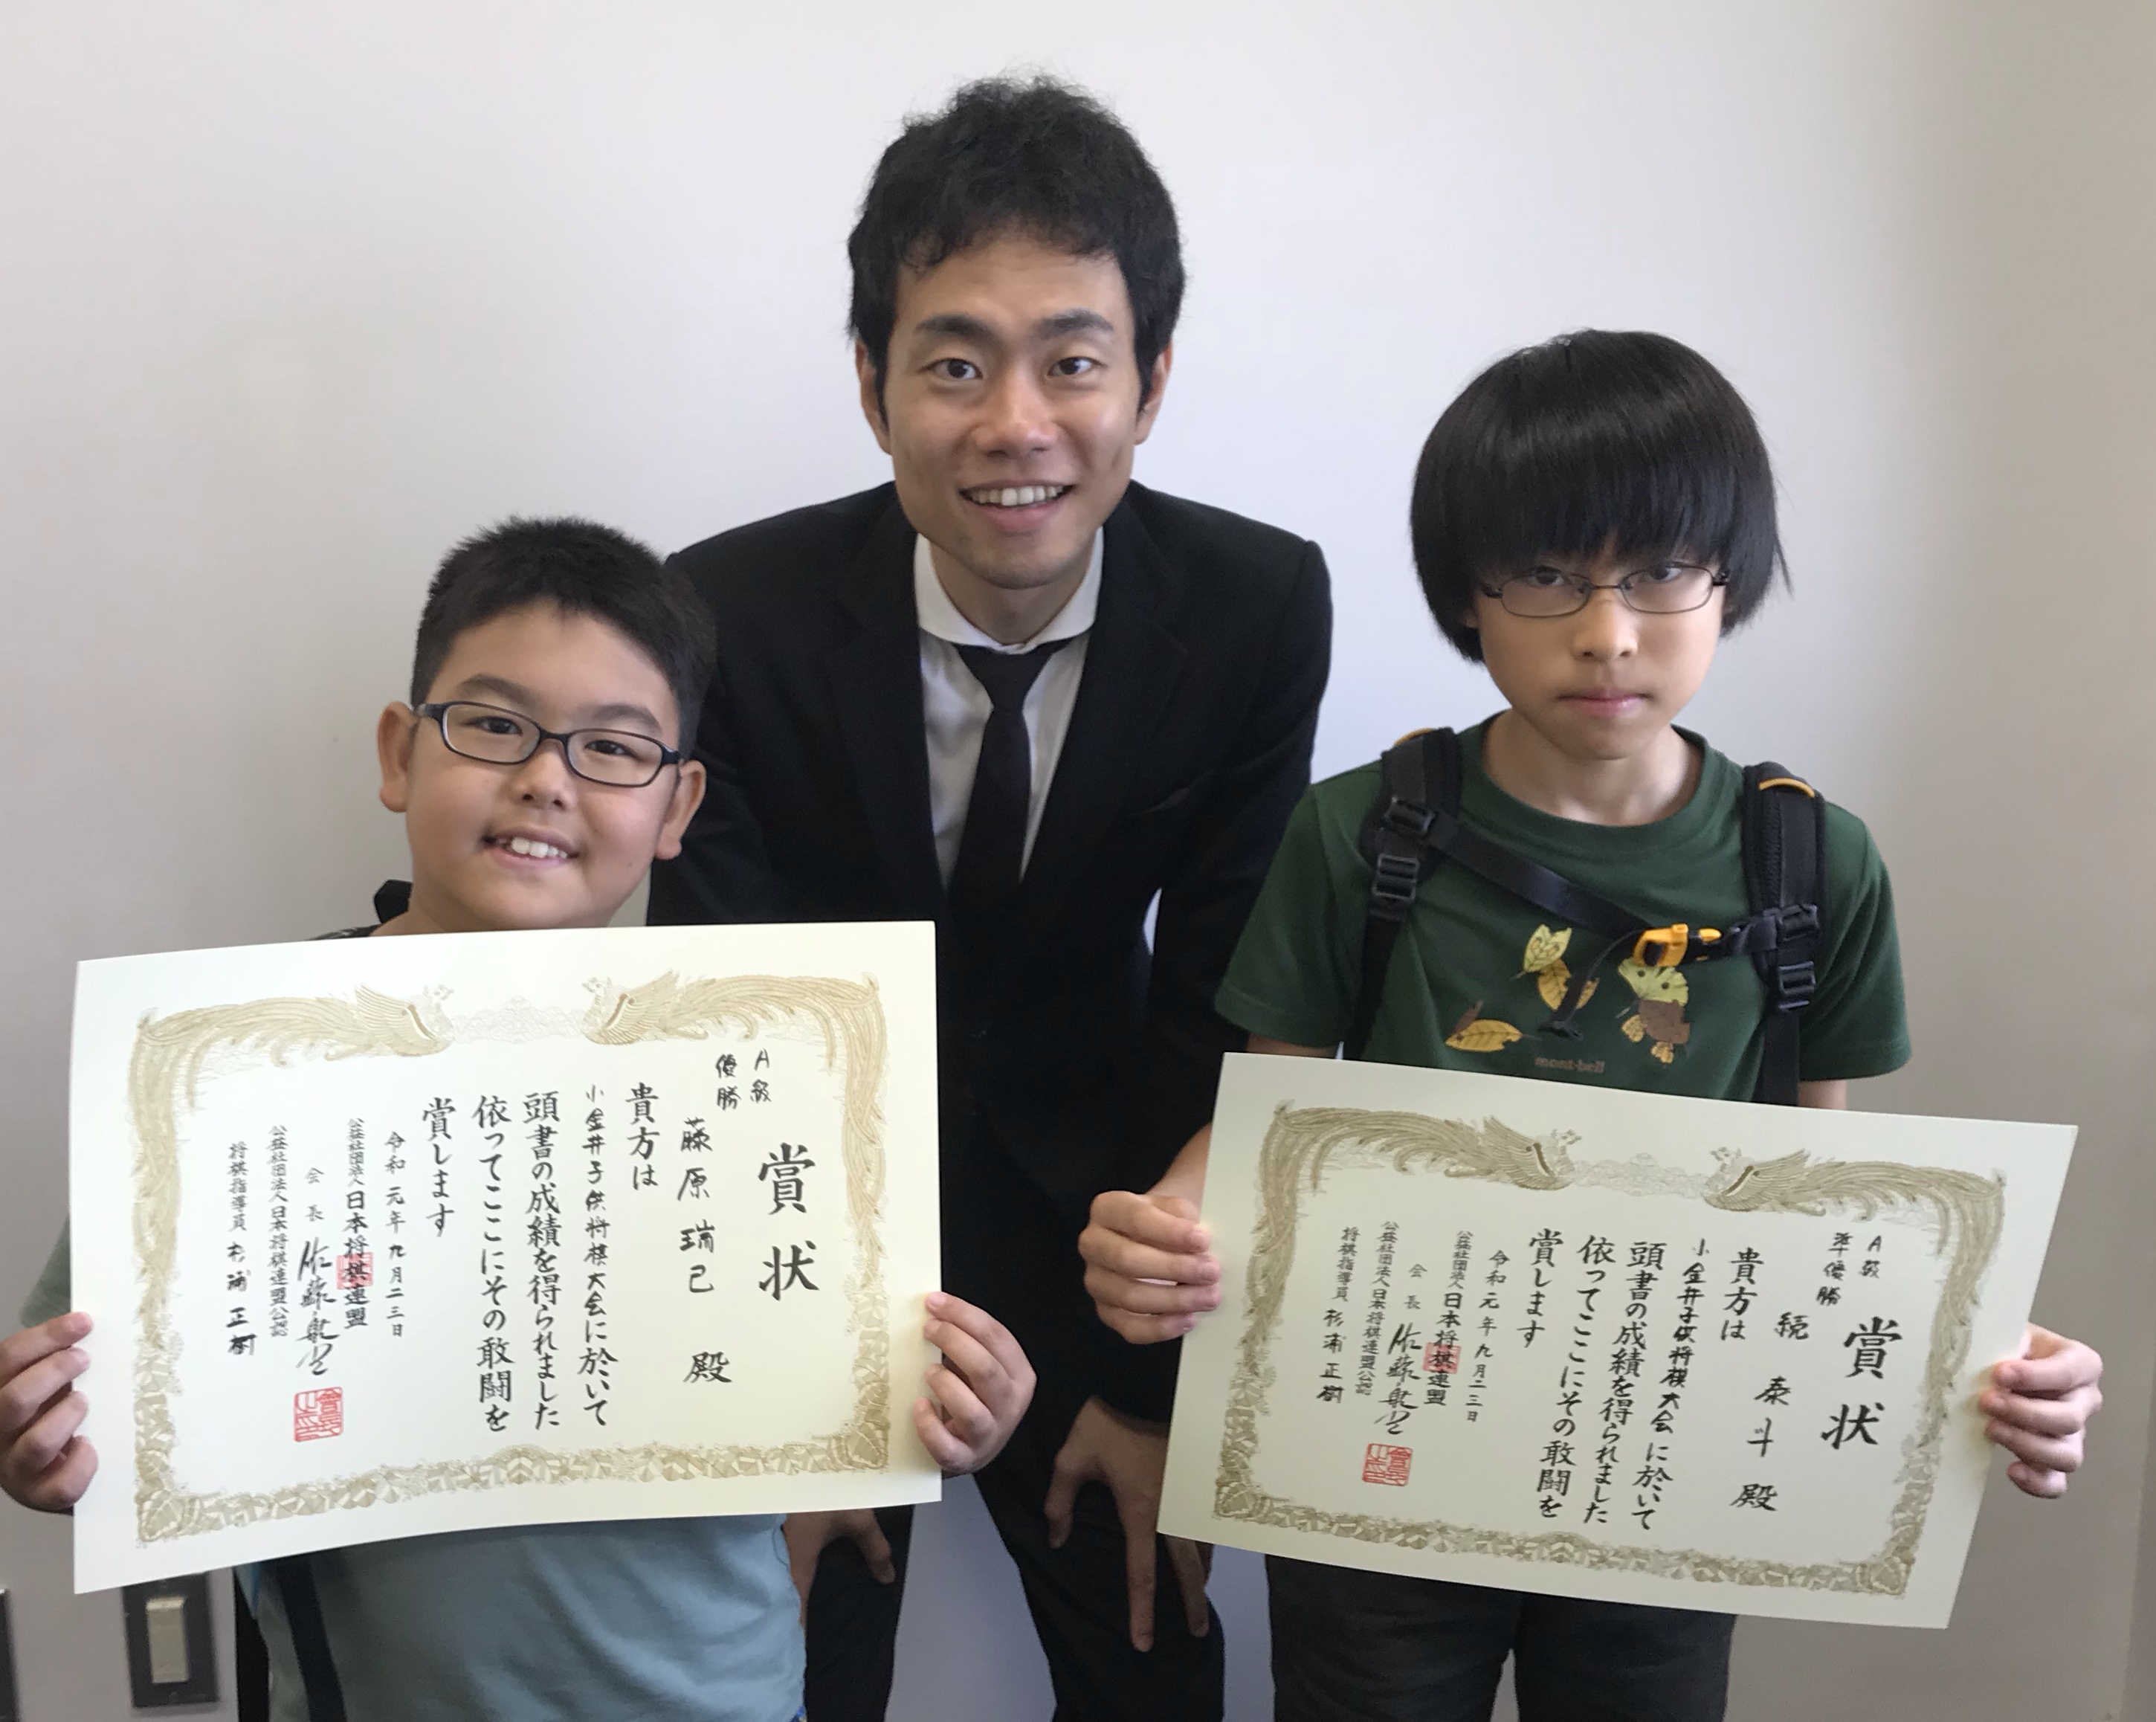 賞状
A級
優勝
藤原瑞己 殿
貴方は
小金井子供将棋大会に於いて
頭書の成績を得られました
依ってここにその敢闘を
賞します
令和元年九月二三日
公益社団法人日本将棋連盟
会長 佐藤康光
公益社団法人日本将棋連盟公認
将棋指導員 杉浦正樹
mont-bell
賞状
A級
準優勝
続 泰斗 殿
貴方は
小金井子供将棋大会に於いて
頭書の成績を得られました
依ってここにその敢闘を
賞します
令和元年九月二三日
公益社団法人日本将棋連盟
会長 佐藤康光
公益社団法人日本将棋連盟公認
将棋指導員 杉浦正樹